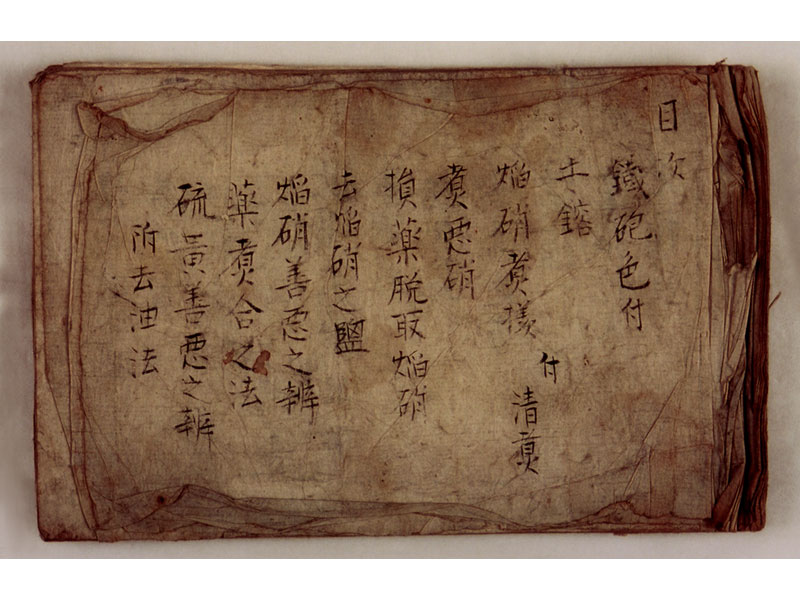 目次
鐵砲色付
土鎔
焔硝煑様 付 清煑
煑悪硝
損薬脱取焔硝
去焔硝之鹽
焔硝善悪之辨
薬煑合之法
硫黄善悪之辨
附去油法